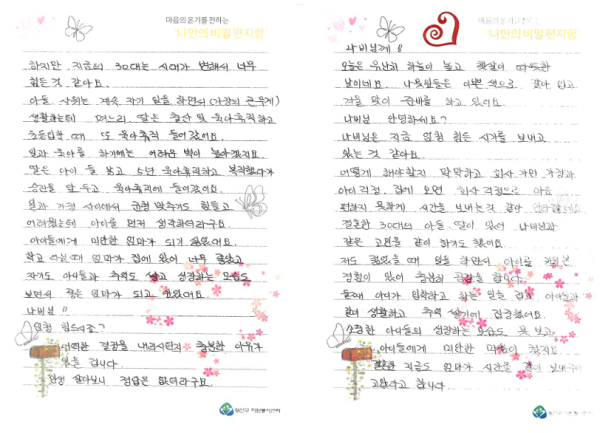 마음의 온기를 전하는
'나만의 비밀 편지함'
하지만 지금의 30대는 시대가 변해서 너무
힘든 것 같아요.
아들 사위는 계속 자기 일을 하면서 (가정의 큰무게)
생활하는데 며느리, 딸은 출산 및 육아휴직하고
초등입학 때 또 육아휴직 들어갔어요.
일과 육아를 하기에는 어려운 벽이 높아졌지요
딸은 아이 둘 낳고 5년 육아휴직하고 복직했다가
승진을 앞두고 육아휴직에 들어갔어요.
일과 가정 사이에서 균형 맞추기도 힘들고
어려웠는데 아이를 먼저 생각하더라구요.
아이들에게 미안한 엄마가 되기 싫었어요.
학교 다닐때 엄마가 집에 있어 너무 좋았고
자기도 아이들과 추억도 쌓고 성장하는 모습도
보면서 좋은 엄마가 되고 싶었어요
나비님 !!
엄청 힘드시죠?
결정을 내리시던지 충분한 이유가
있을 겁니다
살다보니 정답은 없더라구요.
마음의 온기를 전하는
'나만의 비밀 편지함'
나비님께 !!
오늘은 유난히 하늘이 높고 햇살이 따뜻한
날이네요. 나뭇잎들은 예쁜 색으로 갈아 입고
겨울 맞이 준비를 하고 있어요.
나비님 안녕하세요?
나비님은 지금 엄청 힘든 시기를 보내고
있는 것 같아요.
어떻게 해야할지 막막하고 회사 가면 가정과
아이걱정, 집에 오면 회사 걱정으로 마음
편하지 못하게 시간을 보내는것 같아
결혼한 30대의 아들 딸이 있어 나비님과
같은 고민을 같이 하기도 했어요.
저도 젊었을 때 일을 하면서 아이를 키웠던
경험이 있어 충분히 공감을 합니다.
둘째 아이가 입학하고 하는 일을 접고 아이들과
같이 생활하고 추억 쌓기에 집중했어요.
소중한 아이들의 성장하는 모습도 못 보고
아이들에게 미안한 마음이 컸지요
지금도 엄마가 시간을 같이 보내주어
고맙다고 합니다